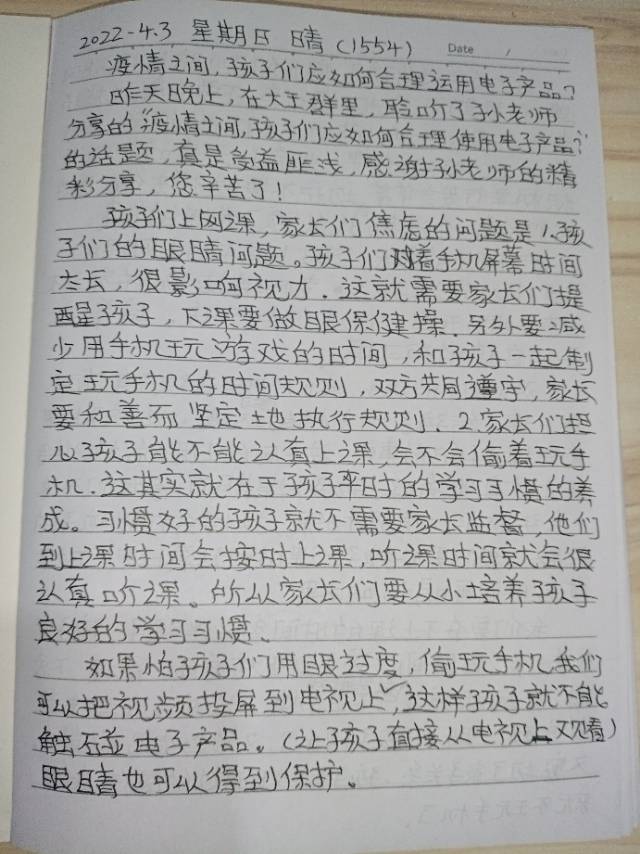 2022-4.3 星期日 晴(1554) Date /
疫情之间,孩子们应如何合理运用电子产品?
昨天晚上,在大王群里,聆听了孙老师
分享的“疫情之间,孩子们应如何合理使用电子产品?”
的话题,真是受益匪浅,感谢孙老师的精
彩分享,您辛苦了!
孩子们上网课,家长们焦虑的问题是1.孩
子们的眼睛问题。孩子们对着手机屏幕时间
太长,很影响视力.这就需要家长们提
醒孩子,下课要做眼保健操.另外要减
少用手机玩游戏的时间,和孩子一起制
定玩手机的时间规则,双方共同遵守,家长
要和善而坚定地执行规则.2.家长们担
心孩子能不能认真上课,会不会偷着玩手
机.这其实就在于孩子平时的学习习惯的养
成。习惯好的孩子就不需要家长监督,他们
到上课时间会按时上课,听课时间就会很
认真听课。所以家长们要从小培养孩子
良好的学习习惯.
如果怕孩子们用眼过度,偷玩手机,我们
可以把视频投屏到电视上,这样孩子就不能
触碰电子产品。(让孩子直接从电视上观看)
眼睛也可以得到保护。